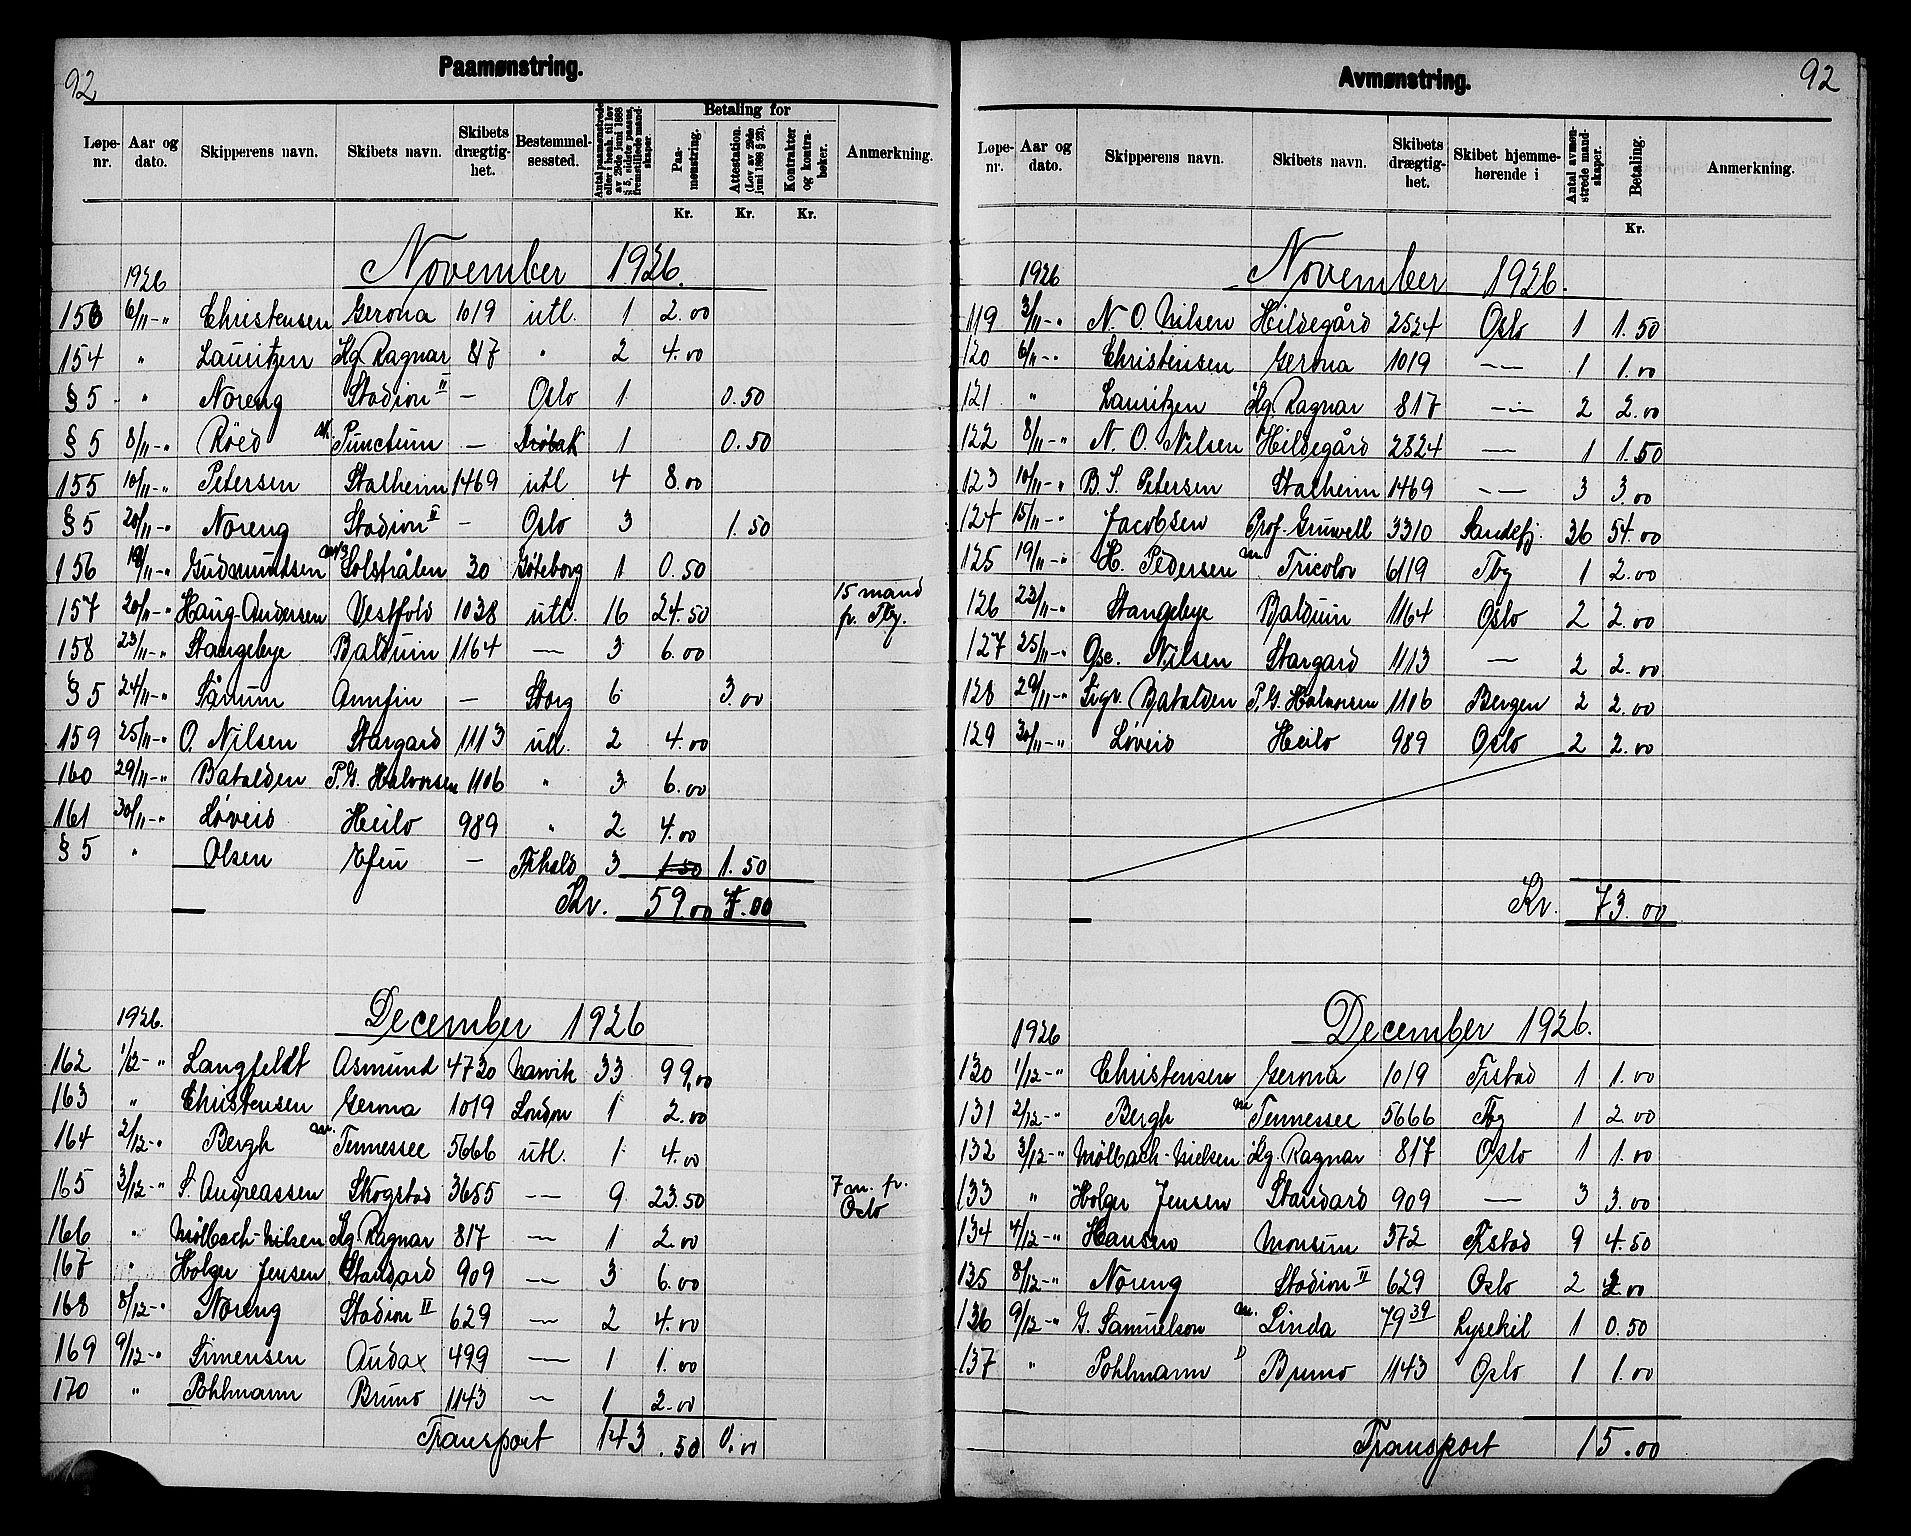 92
Paamønstring.
Løpe-nr. Aar og dato. Skipperens navn. Skibets navn. Skibets drægtig-het. Bestemmel-sessted. Antal paamønstrede eller i henh. til lov av 29de juni 1888 § 5, sidste passus, fremstillede mand-skaper. Betaling for Paa-mønstring. Attestation. (Lov av 29de juni 1888 § 25). Kontrakter og kontra-bøker. Anmerkning.
Kr. Kr. Kr.
1926 November 1926.
153 6/11-" Christensen Gerona 1019 utl. 1 2.00
154 " Lauritzen Kg. Ragnar 817 " 2 4.00
§5 - " Noreng Stadion II — Oslo 1 0.50
§5 8/11-" Røed Punctum — Drøbak 1 0.50
155 10/11-" Petersen Stalheim 1469 utl 4 8.00
§5 20/11-" Noreng Stadion II — Oslo 3 1.50
156 19/11-" Gudmundsen Solstrålen 30 Göteborg 1 0.50
157 20/11-" Haug-Andersen Vestfold 1038 utl. 16 24.50 15 mand fr. Tbg.
158 23/11-" Stangebye Balduin 1164 — 3 6.00
§5 24/11-" Sørum Annfin — Sborg 6 3.00
159 25/11-" O. Nilsen Stargard 1113 utl. 2 4.00
160 29/11-" Batalden P.G. Halvorsen 1106 " 3 6.00
161 30/11-" Løveid Heilo 989 " 2 4.00
§5 " Olsen Efeu — Frhald 3 1.50 1.50
Kr. 59.00 7.00
1926. December 1926
162 1/12-" Langfeldt Asmund 4730 Narvik 33 99.00
163 " Christensen Gerona 1019 London 1 2.00
164 2/12-" Bergh Tennessee 5666 utl. 1 4.00
165 3/12-" S. Andreassen Skogstad 3655 — 9 23.50 7 m. fr. Oslo
166 " Mølbach-Nilsen Kg. Ragnar 817 — 1 2.00
167 " Holger Jensen Standard 909 — 3 6.00
168 8/12-" Noreng Stadion II 629 — 2 4.00
169 9/12-" Simensen Audax 499 — 1 1.00
170 " Pohlmann Bruno 1143 — 1 2.00
Transport 143.50 0.00
92
Avmønstring.
Løpe-nr. Aar og dato. Skipperens navn. Skibets navn. Skibets drægtig-het. Skibet hjemme-hørende i Antal avmøn-strede mand-skaper. Betaling. Anmerkning.
Kr.
1926 November 1926.
119 3/11-" N. O. Nilsen Hildegård 2524 Oslo 1 1.50
120 6/11-" Christensen Gerona 1019 — 1 1.00
121 " Lauritzen Kg. Ragnar 817 — 2 2.00
122 8/11-" N. O. Nilsen Hildegård 2324 — 1 1.50
123 10/11-" B. S. Petersen Stalheim 1469 — 3 3.00
124 15/11-" Jacobsen Prof. Gruvell 3310 Sandefj. 36 54.00
125 19/11-" H. Pedersen Tricolor 6119 Tbg 1 2.00
126 23/11-" Stangebye Balduin 1164 Oslo 2 2.00
127 25/11-" Osc. Nilsen Stargard 1113 — 2 2.00
128 29/11-" Sigv. Batalden P. G. Halvorsen 1106 Bergen 2 2.00
129 30/11-" Løveid Heilo 989 Oslo 2 2.00
Kr. 73.00
1926 December 1926.
130 1/12-" Christensen Gerona 1019 Frstad 1 1.00
131 2/12-" Bergh Tennessee 5666 Tbg 1 2.00
132 3/12-" Mølbach-Nielsen Kg. Ragnar 817 Oslo 1 1.00
133 " Holger Jensen Standard 909 — 3 3.00
134 4/12-" Hansen Monsun 372 Frstad 9 4.50
135 8/12-" Noreng Stadion II 629 Oslo 2 2.00
136 9/12-" G. Samuelson Linda 79 39 Lysekil 1 0.50
137 " Pohlmann Bruno 1143 Oslo 1 1.00
Transport 15.00